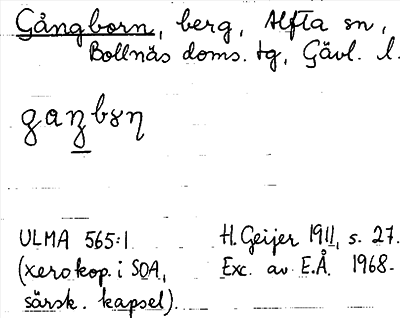 Gångborn, berg, Alfta sn,
Bollnäs doms. tg, Gävl. l.
gaŋbɤɳ
ULMA 565:1
(xerokop. i SOA,
särsk. kapsel).
H. Geijer 1911, s. 27.
Exc. av E.Å. 1968.